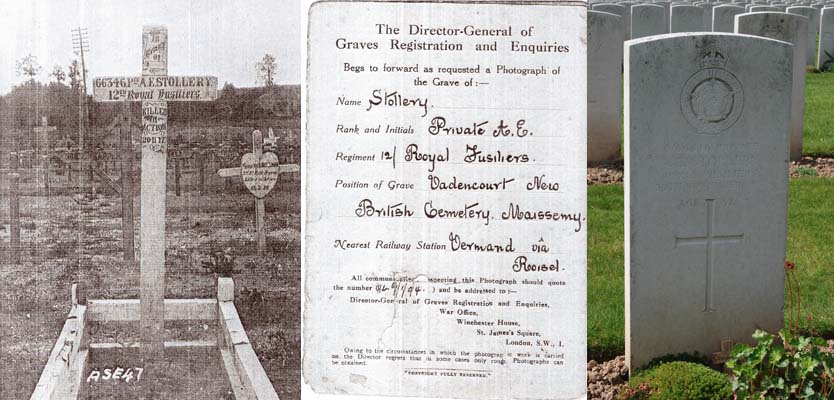 IN
Memory
OF
66346 Pte A.E. STOLLERY.
12th Royal Fusiliers.
KILLED
IN
ACTION
20 11 17
ASE47
The Director-General of
Graves Registration and Enquiries
Begs to forward as requested a Photograph of
the Grave of :—
Name Stollery.
Rank and Initials Private A.E.
Regiment 12/ Royal Fusiliers.
Position of Grave Vadencourt New
British Cemetery, Maissemy.
Nearest Railway Station Vermand viâ
Roisel.
All respecting this Photograph should quote
the number ) and be addressed to :—
Director-General of Graves Registration and Enquiries,
War Office,
Winchester House,
St. James's Square,
London, S.W., 1.
Owing to the circumstances in which the photographic work is carried
on, the Director regrets that in some cases only rough Photographs can
be obtained.
"COPYRIGHT FULLY RESERVED."